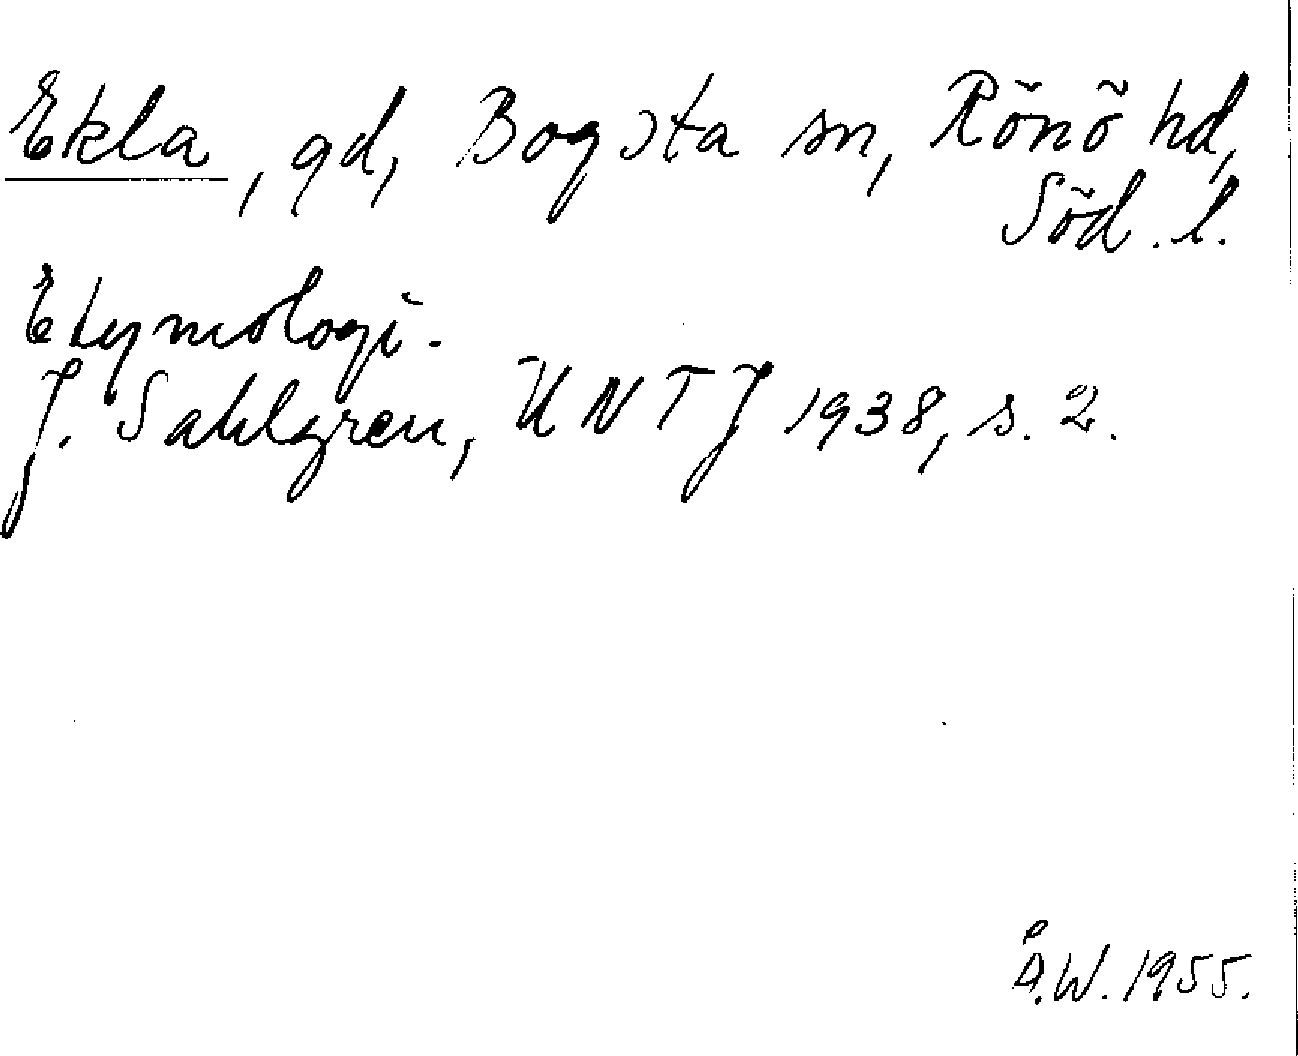 Ekla, gd, Bogsta sn, Rönö hd,
Söd. l.
Etymologi.
J. Sahlgren, UNTJ 1938, s. 2.
Å.W. 1955.